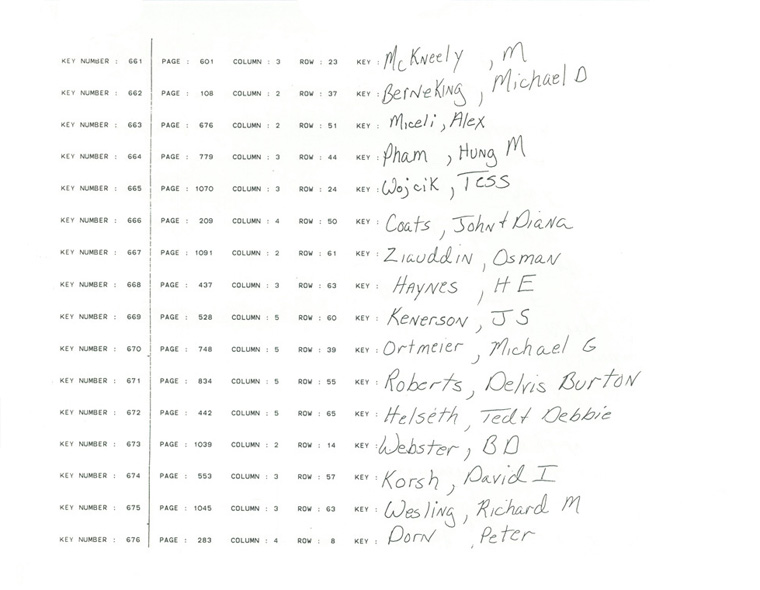 KEY NUMBER : 661 PAGE : 601 COLUMN : 3 ROW : 23 KEY : McKneely , M
KEY NUMBER : 662 PAGE : 108 COLUMN : 2 ROW : 37 KEY : BerNeKiNg , Michael D
KEY NUMBER : 663 PAGE : 676 COLUMN : 2 ROW : 51 KEY : Miceli , Alex
KEY NUMBER : 664 PAGE : 779 COLUMN : 3 ROW : 44 KEY : Pham , Hung M
KEY NUMBER : 665 PAGE : 1070 COLUMN : 3 ROW : 24 KEY : Wojcik , Tess
KEY NUMBER : 666 PAGE : 209 COLUMN : 4 ROW : 50 KEY : Coats , John + Diana
KEY NUMBER : 667 PAGE : 1091 COLUMN : 2 ROW : 61 KEY : Ziauddin , Osman
KEY NUMBER : 668 PAGE : 437 COLUMN : 3 ROW : 63 KEY : HAYNES , H E
KEY NUMBER : 669 PAGE : 528 COLUMN : 5 ROW : 60 KEY : KENERSON , J S
KEY NUMBER : 670 PAGE : 748 COLUMN : 5 ROW : 39 KEY : Ortmeier , Michael G
KEY NUMBER : 671 PAGE : 834 COLUMN : 5 ROW : 55 KEY : Roberts , Delvis Burton
KEY NUMBER : 672 PAGE : 442 COLUMN : 5 ROW : 65 KEY : Helseth , Ted + Debbie
KEY NUMBER : 673 PAGE : 1039 COLUMN : 2 ROW : 14 KEY : Webster , B D
KEY NUMBER : 674 PAGE : 553 COLUMN : 3 ROW : 57 KEY : Korsh , David I
KEY NUMBER : 675 PAGE : 1045 COLUMN : 3 ROW : 63 KEY : Wesling , Richard M
KEY NUMBER : 676 PAGE : 283 COLUMN : 4 ROW : 8 KEY : Dorn , Peter